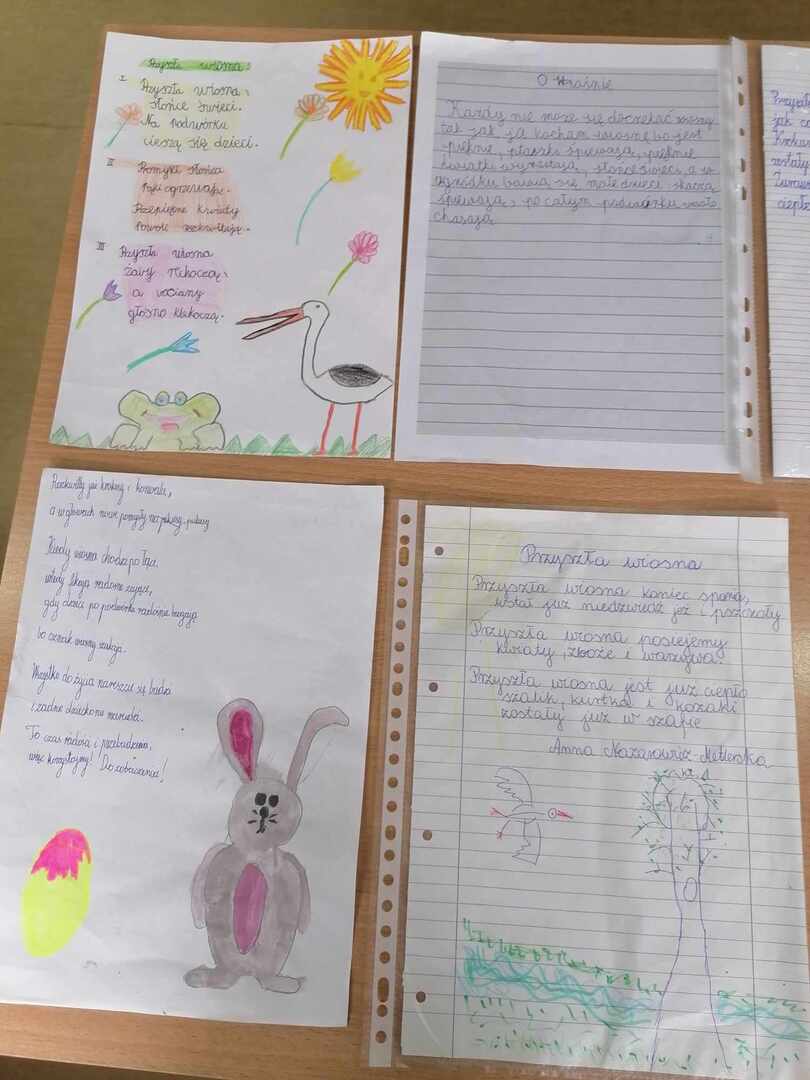 Przyszła wiosna
I Przyszła wiosna
słońce świeci.
Na podwórku
cieszą się dzieci.
II Promyki słońca
Pąki ogrzewają.
Przepiękne kwiaty
Powoli rozkwitają.
III Przyszła wiosna
żaby rechoczą
a bociany
głośno klekoczą.
O Wiośnie
Każdy nie może się doczekać wiosny
tak jak ja kocham wiosnę bo jest
pięknie, ptaszki śpiewają, pięknie
kwiatki wyrastają, słońce świeci, a w
ogródku bawią się małe dzieci skaczą
śpiewają, po całym podwórku
Przyszła
jak
Rozkwitły już krokusy i konwalie,
a w głowach nowe pomysły
Kiedy wiosna chodzi po łące,
wtedy fikają radośnie zające,
gdy dzieci po podwórku radośnie biegają
bo oznak wiosny szukają.
Wszystko do życia nareszcie się budzi
i żadne dziecko nie marudzi.
To czas radości i przebudzenia,
więc korzystajmy! Do zobaczenia!
Przyszła wiosna
Przyszła wiosna koniec spania,
wstał już niedźwiedź jeż i pszczoły
Przyszła wiosna posiejemy
kwiaty, zboże i warzywa.
Przyszła wiosna jest już ciepło
szalik, kurtka i kozaki
zostały już w szafie
Anna